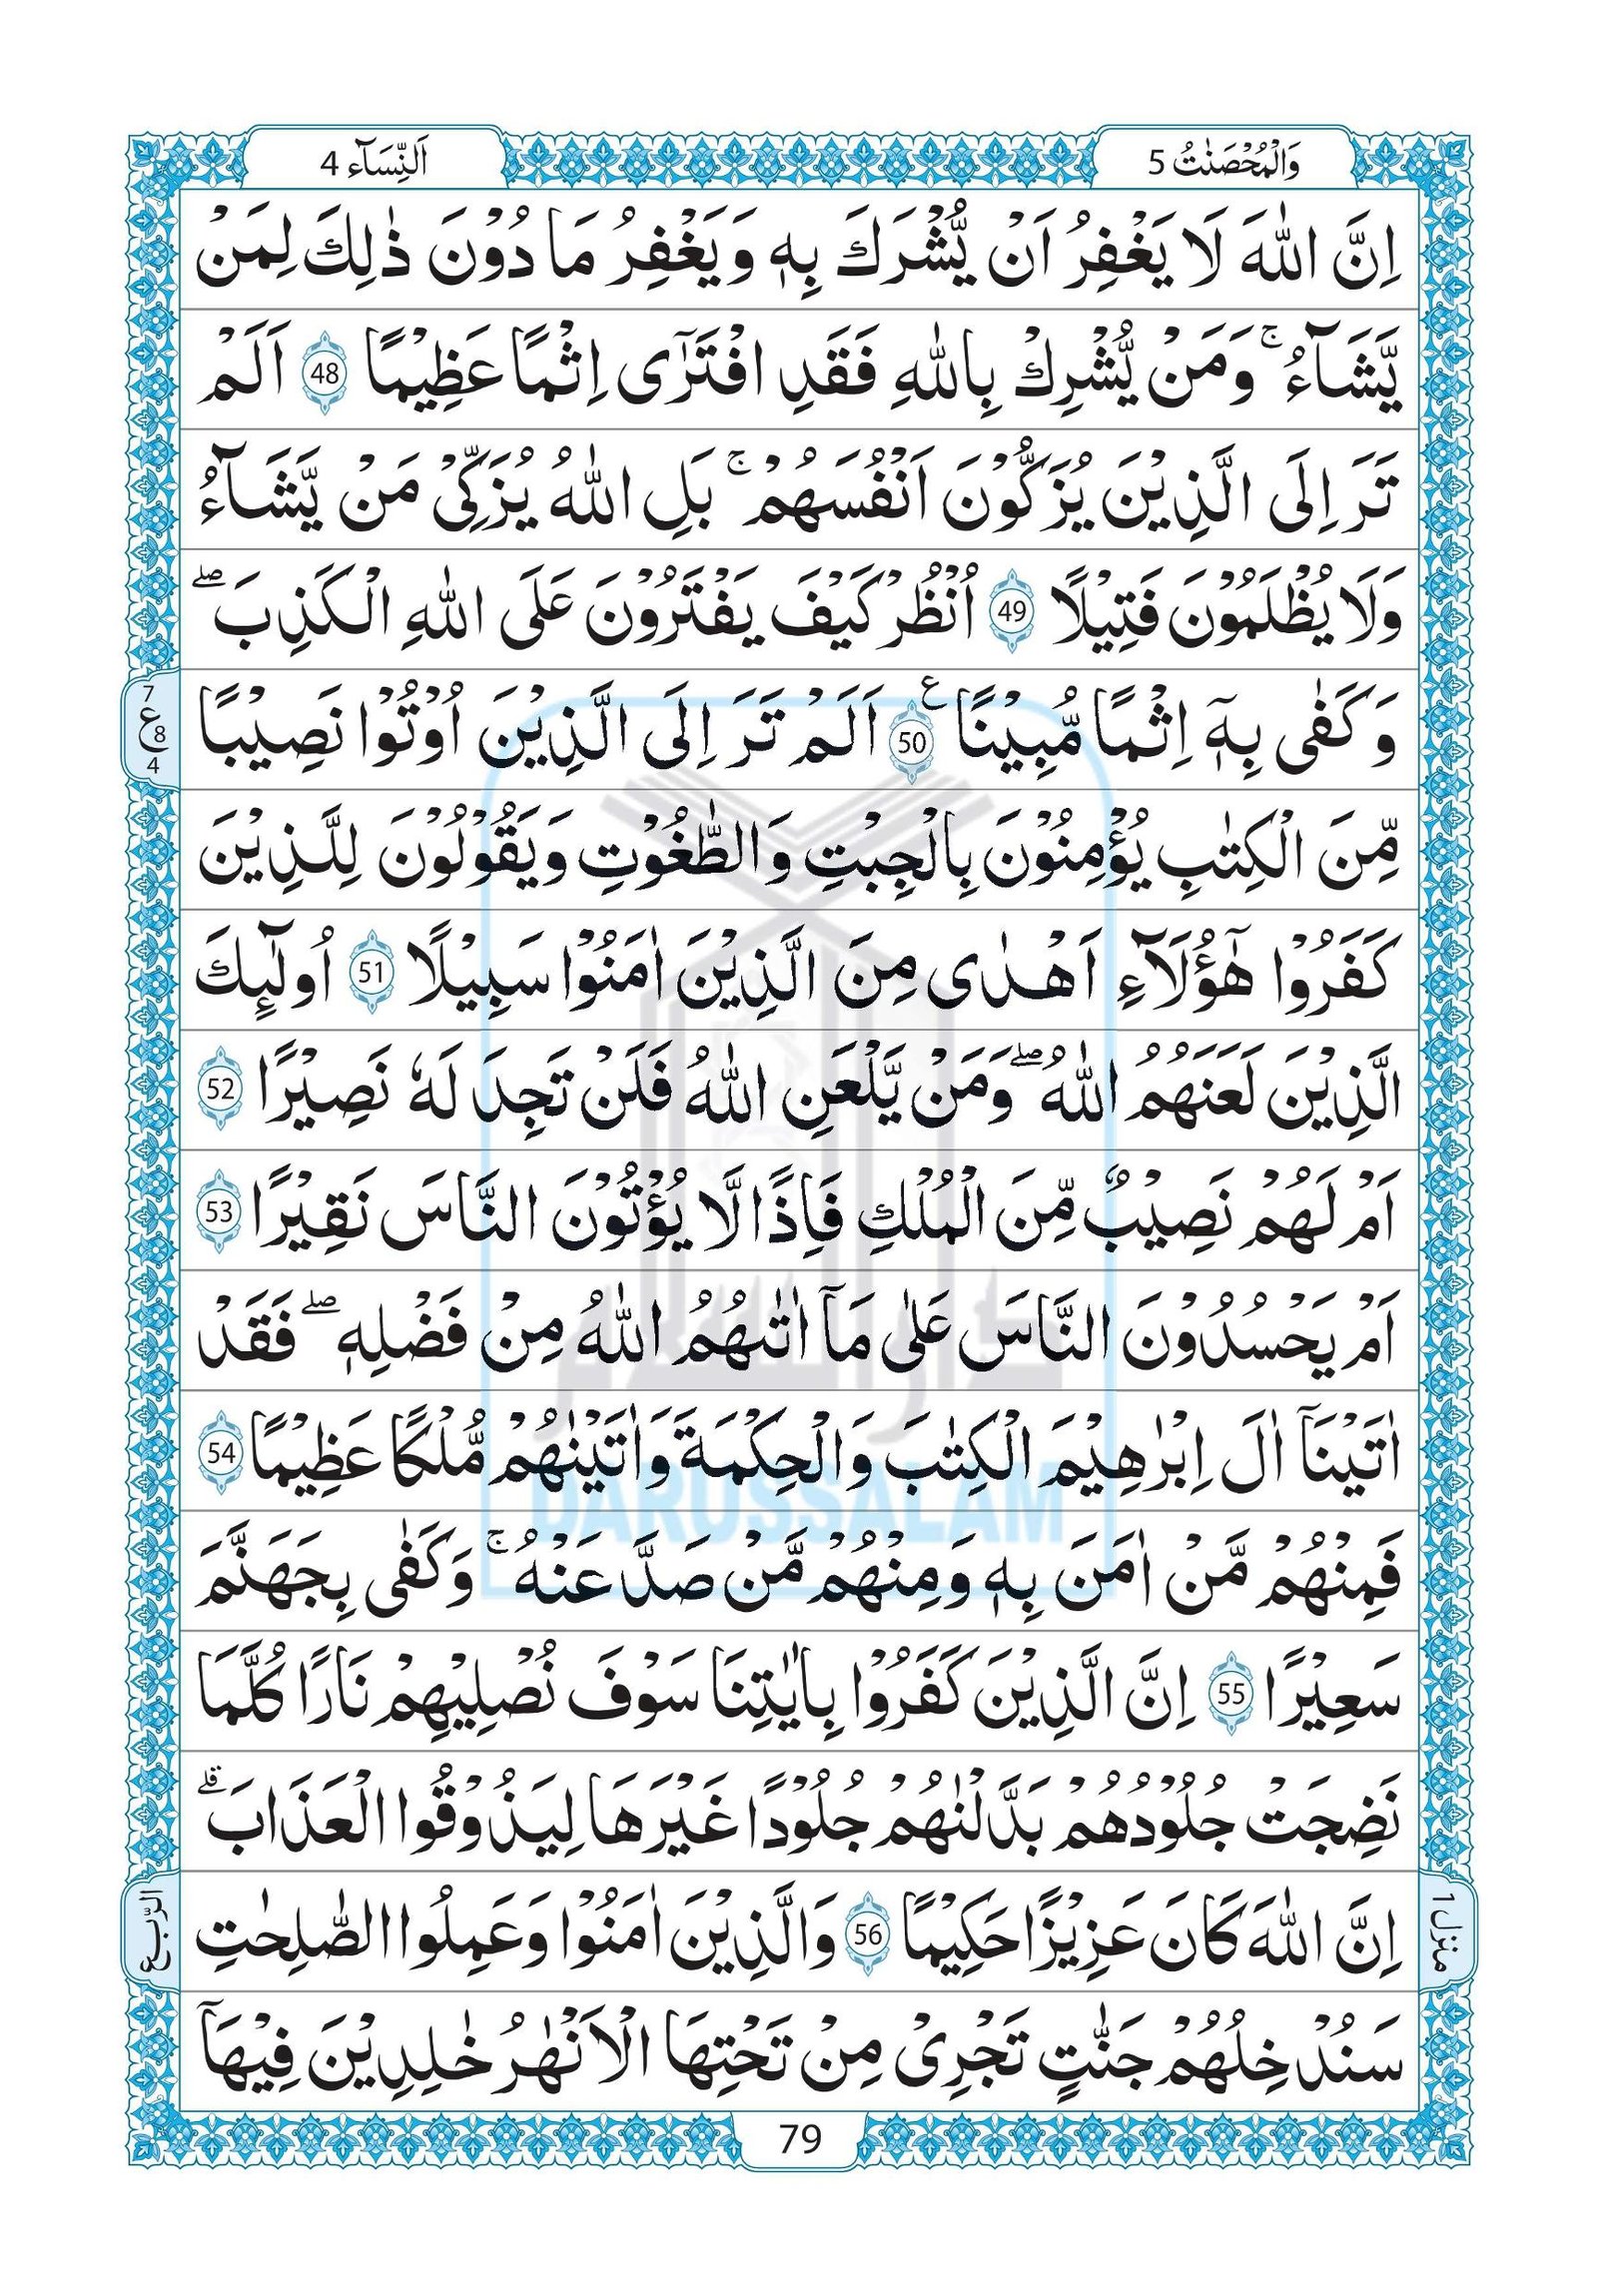 وَالْمُحْصَنٰتُ 5
اَلنِّسَآء 4
اِنَّ اللّٰهَ لَا يَغْفِرُ اَنْ يُّشْرَكَ بِهٖ وَيَغْفِرُ مَا دُوْنَ ذٰلِكَ لِمَنْ
يَّشَآءُ ۚ وَمَنْ يُّشْرِكْ بِاللّٰهِ فَقَدِ افْتَرٰٓى اِثْمًا عَظِيْمًا 48 اَلَمْ
تَرَ اِلَى الَّذِيْنَ يُزَكُّوْنَ اَنْفُسَهُمْ ۚ بَلِ اللّٰهُ يُزَكِّىْ مَنْ يَّشَآءُ
وَلَا يُظْلَمُوْنَ فَتِيْلًا 49 اُنْظُرْ كَيْفَ يَفْتَرُوْنَ عَلَى اللّٰهِ الْكَذِبَ ۖ
وَكَفٰى بِهٖٓ اِثْمًا مُّبِيْنًا ع 50 اَلَمْ تَرَ اِلَى الَّذِيْنَ اُوْتُوْا نَصِيْبًا
7
ع
8
4
مِّنَ الْكِتٰبِ يُؤْمِنُوْنَ بِالْجِبْتِ وَالطّٰغُوْتِ وَيَقُوْلُوْنَ لِلَّذِيْنَ
كَفَرُوْا هٰٓؤُلَآءِ اَهْدٰى مِنَ الَّذِيْنَ اٰمَنُوْا سَبِيْلًا 51 اُولٰٓئِكَ
الَّذِيْنَ لَعَنَهُمُ اللّٰهُ ۖ وَمَنْ يَّلْعَنِ اللّٰهُ فَلَنْ تَجِدَ لَهٗ نَصِيْرًا 52
اَمْ لَهُمْ نَصِيْبٌ مِّنَ الْمُلْكِ فَاِذًا لَّا يُؤْتُوْنَ النَّاسَ نَقِيْرًا 53
اَمْ يَحْسُدُوْنَ النَّاسَ عَلٰى مَآ اٰتٰىهُمُ اللّٰهُ مِنْ فَضْلِهٖ ۖ فَقَدْ
اٰتَيْنَآ اٰلَ اِبْرٰهِيْمَ الْكِتٰبَ وَالْحِكْمَةَ وَاٰتَيْنٰهُمْ مُّلْكًا عَظِيْمًا 54
DARUSSALAM
فَمِنْهُمْ مَّنْ اٰمَنَ بِهٖ وَمِنْهُمْ مَّنْ صَدَّ عَنْهُ ۚ وَكَفٰى بِجَهَنَّمَ
سَعِيْرًا 55 اِنَّ الَّذِيْنَ كَفَرُوْا بِاٰيٰتِنَا سَوْفَ نُصْلِيْهِمْ نَارًا كُلَّمَا
نَضِجَتْ جُلُوْدُهُمْ بَدَّلْنٰهُمْ جُلُوْدًا غَيْرَهَا لِيَذُوْقُوا الْعَذَابَ ۗ
اِنَّ اللّٰهَ كَانَ عَزِيْزًا حَكِيْمًا 56 وَالَّذِيْنَ اٰمَنُوْا وَعَمِلُوا الصّٰلِحٰتِ
منزل 1
الرّبع
سَنُدْخِلُهُمْ جَنّٰتٍ تَجْرِىْ مِنْ تَحْتِهَا الْاَنْهٰرُ خٰلِدِيْنَ فِيْهَآ
79